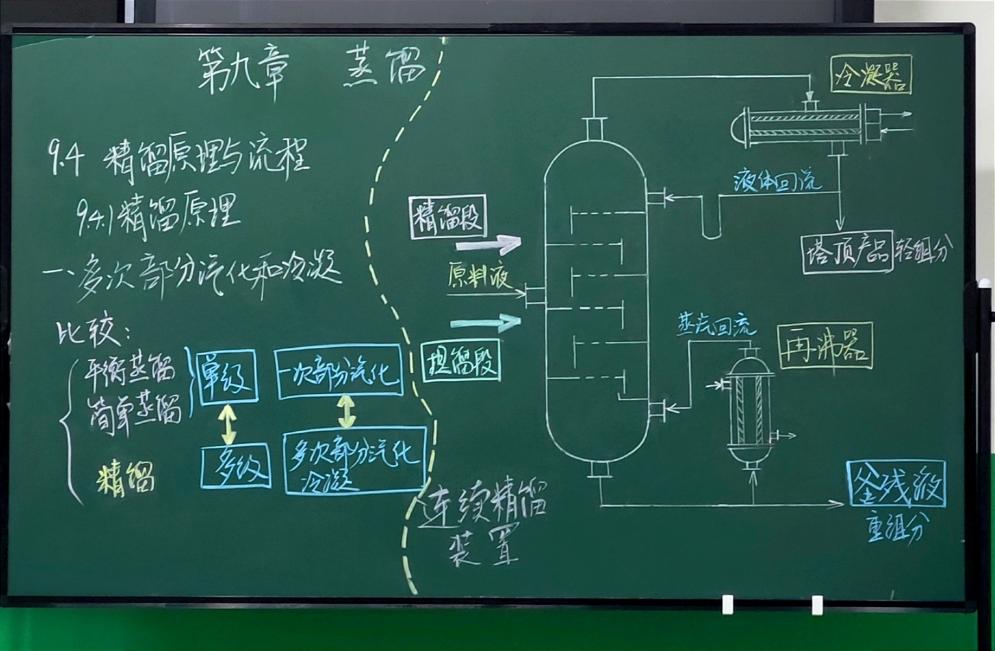 第九章 蒸馏
9.4 精馏原理与流程
9.4.1 精馏原理
一、多次部分汽化和冷凝
比较:
平衡蒸馏
简单蒸馏
单级
一次部分汽化
精馏
多级
多次部分汽化
冷凝
冷凝器
液体回流
精馏段
塔顶产品 轻组分
原料液
蒸汽回流
再沸器
提馏段
釜残液
重组分
连续精馏
装置